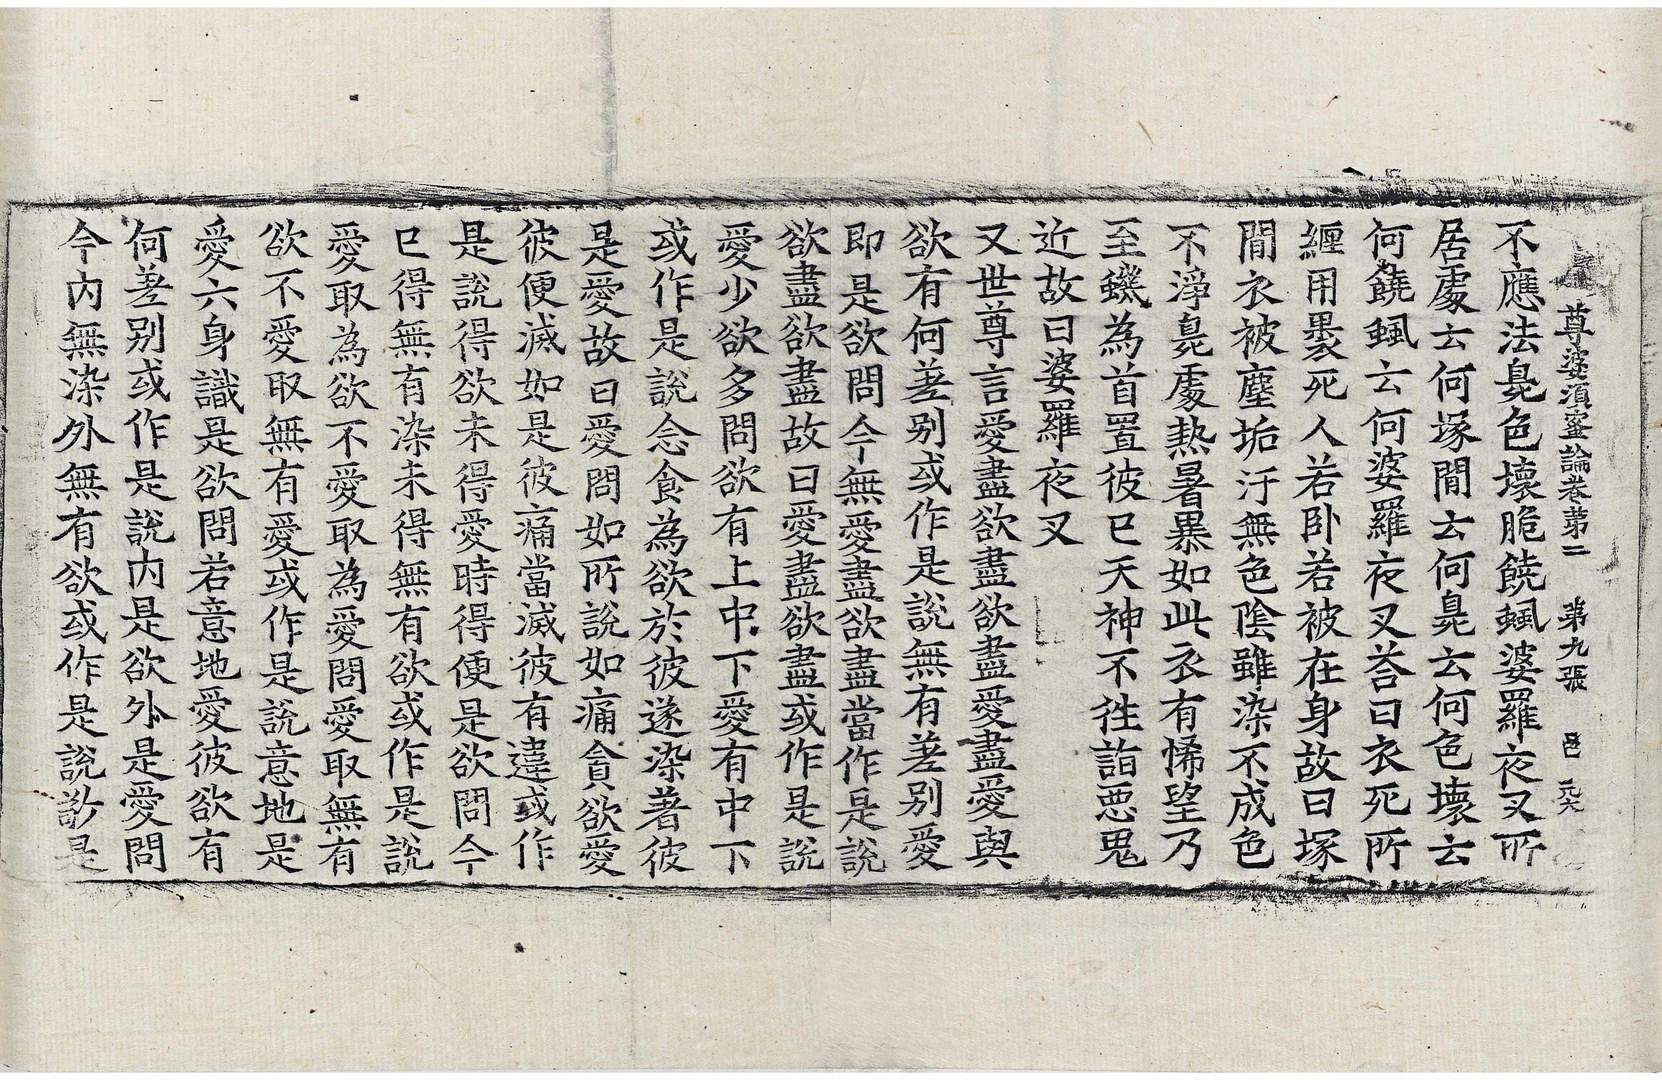 尊婆須蜜論卷苐二　第九張　邑
不應法臰色壞脆饒蝨婆羅夜叉所
居處云何塚間云何臰云何色壞云
何饒蝨云何婆羅夜叉荅曰衣死所
纏用褁死人若卧若被在身故曰塚
間衣被塵垢汙無色陰雖染不成色
不淨臰處熱暑暴如此衣有悕望乃
至蟣為首置彼巳天神不徃詣惡鬼
近故曰婆羅夜叉
又世尊言愛盡欲盡欲盡愛盡愛與
欲有何差别或作是説無有差别愛
即是欲問今無愛盡欲盡當作是説
欲盡欲盡故曰愛盡欲盡或作是説
愛少欲多問欲有上中下愛有中下
或作是説念食為欲於彼遂染著彼
是愛故曰愛問如所説如痛貪欲愛
彼便滅如是彼痛當滅彼有違或作
是説得欲未得愛時得便是欲問今
巳得無有染未得無有欲或作是説
愛取為欲不愛取為愛問愛取無有
欲不愛取無有愛或作是説意地是
愛六身識是欲問若意地愛彼欲有
何差别或作是説内是欲外是愛問
今内無染外無有欲或作是説是